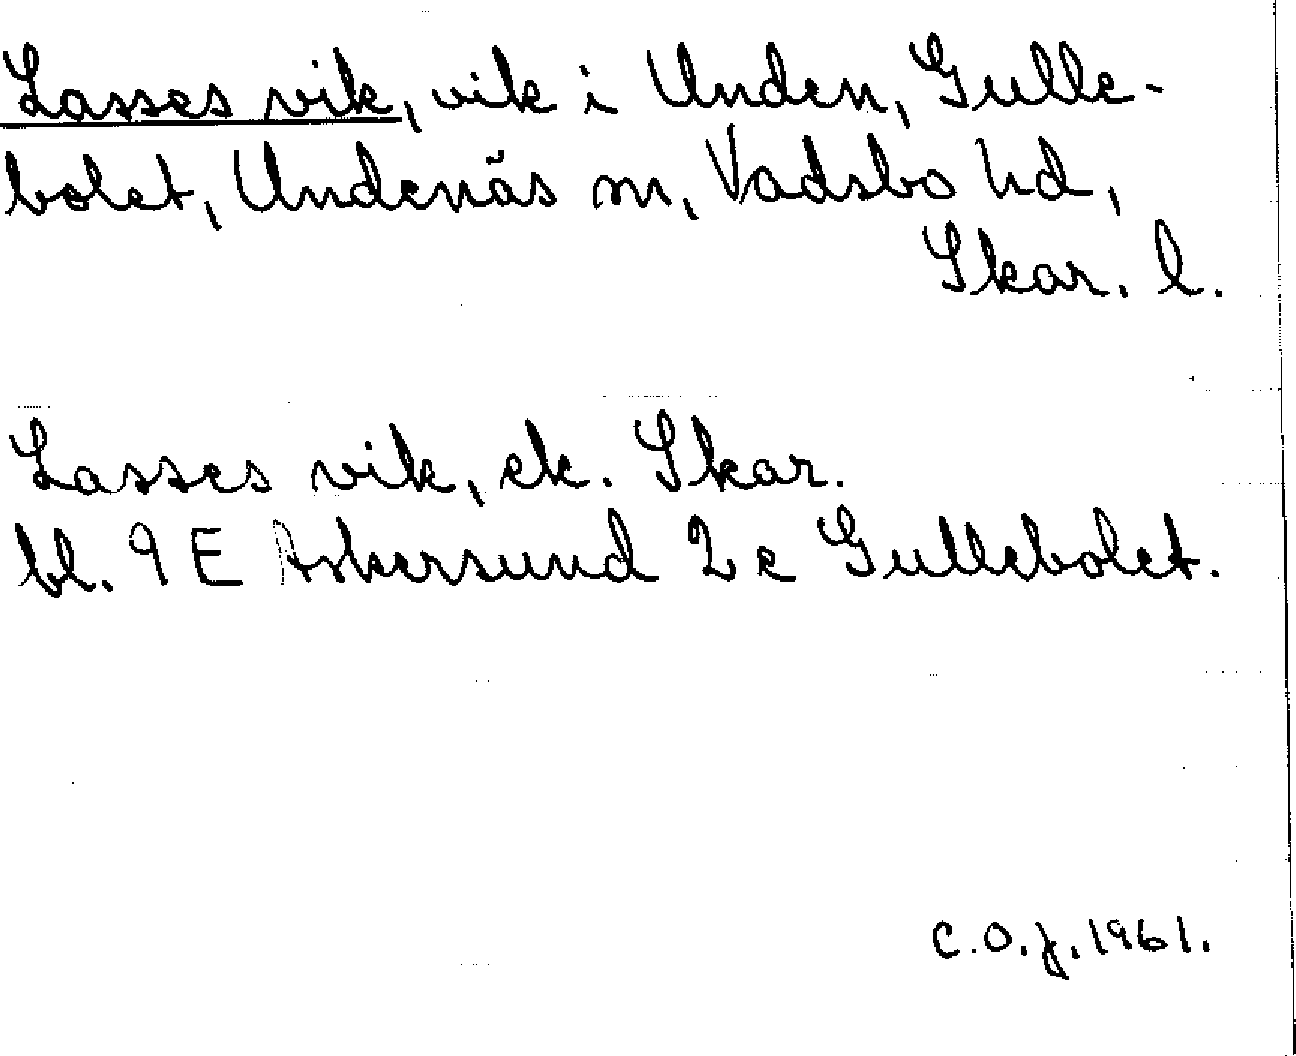 Lasses vik, vik i Unden, Gulle-
bolet, Undenäs sn, Vadsbo hd,
Skar. l.
Lasses vik, ek. Skar.
bl. 9 E Askersund 2 c Gullebolet.
C.O.J. 1961.